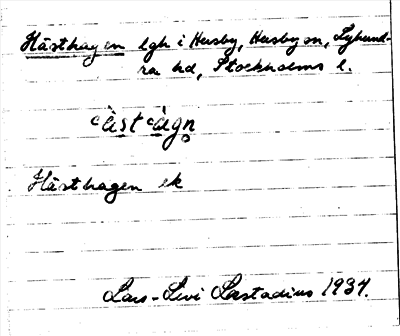 Hästhagen lgh i Husby, Husby sn, Lyhund-
ra hd, Stockholms l.
Hästhagen ek
Lars-Levi Læstadius 1937.